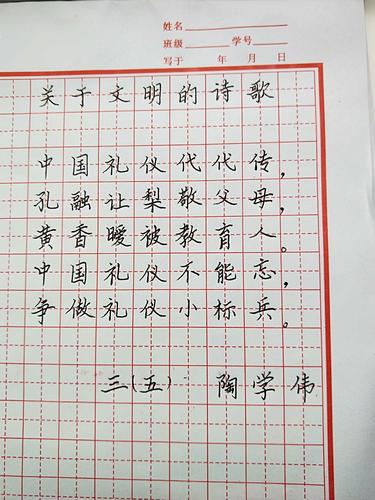 姓名
班级 学号
写于 年 月 日
关于文明的诗歌
中国礼仪代代传，
孔融让梨敬父母，
黄香暖被教育人。
中国礼仪不能忘，
争做礼仪小标兵。
三(五) 陶学伟